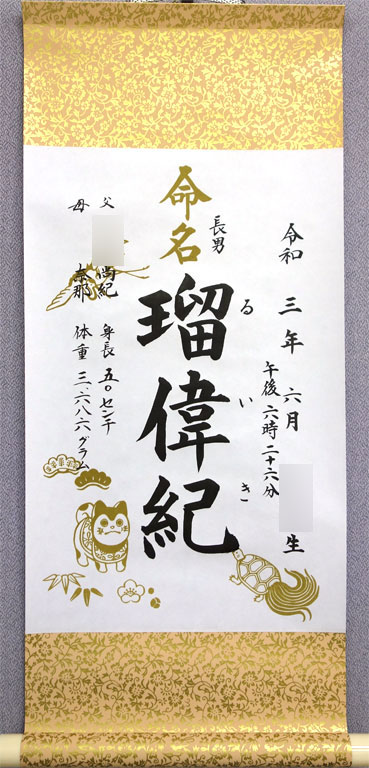 令和三年六月 生
午後六時二十六分
命名
長男
瑠偉紀
るいき
父 尚紀
身長 五〇センチ
母 奈那
体重 三、六八六グラム